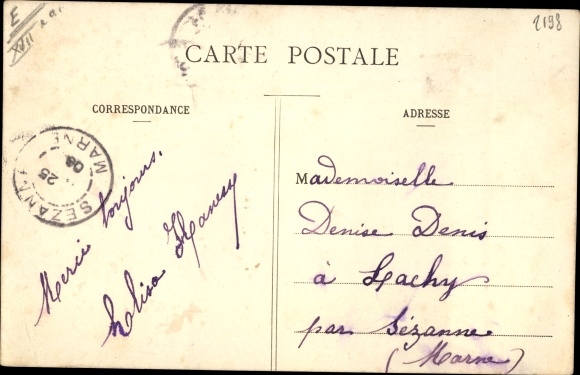 2198
CARTE POSTALE
CORRESPONDANCE
ADRESSE
SÉZANNE
MARNE
25
08
Merci toujours.
Elisa
Mademoiselle
Denise Denis
à Lachy
par Sézanne
(Marne)